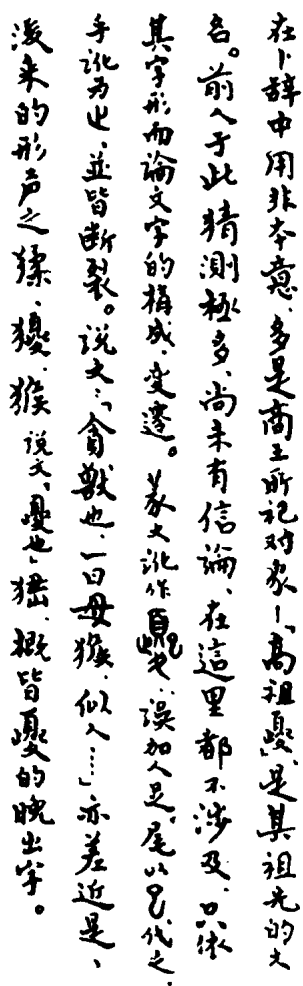 在卜辞中用非本意、多是商王所祀对象—「高祖夒」、是其祖先的大
名。前人于此猜測極多、尚未有信論、在這里都不涉及、只依
其字形而論文字的構成、变遷。篆文訛作夒、誤加人足、尾以巳代之、
手訛为止、並皆断裂。说文：「貪獸也、一曰母猴、似人……」亦差近是、
後来的形声之猱、獶、猴说文、夒也」猫、概皆夒的晚出字。